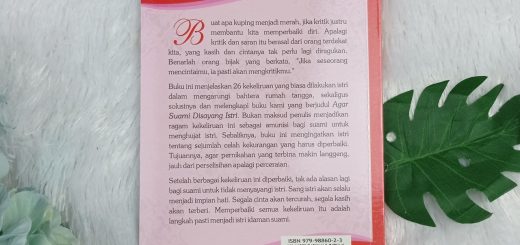 Buat apa kuping menjadi merah, jika kritik justru
membantu kita memperbaiki diri. Apalagi
kritik dan saran itu berasal dari orang terdekat
kita, yang kasih dan cintanya tak perlu lagi diragukan.
Benarlah orang bijak yang berkata, "Jika seseorang
mencintaimu, ia pasti akan mengkritikmu."
Buku ini menjelaskan 26 kekeliruan yang biasa dilakukan istri
dalam mengarungi bahtera rumah tangga, sekaligus
solusinya dan melengkapi buku kami yang berjudul Agar
Suami Disayang Istri. Bukan maksud penulis menjadikan
ragam kekeliruan ini sebagai amunisi bagi suami untuk
menghujat istri. Sebaliknya, buku ini mengingatkan istri
tentang sejumlah celah kekurangan yang harus diperbaiki.
Tujuannya, agar pernikahan yang terbina makin langgeng,
jauh dari perselisihan apalagi perceraian.
Setelah berbagai kekeliruan ini diperbaiki, tak ada alasan lagi
bagi suami untuk tidak menyayangi istri. Sang istri akan selalu
menjadi impian hati. Segala cinta akan tercurah, segala kasih
akan terberi. Memperbaiki semua kekeliruan itu adalah
langkah pasti menjadi istri idaman suami.
ISBN 979-98860-2-3